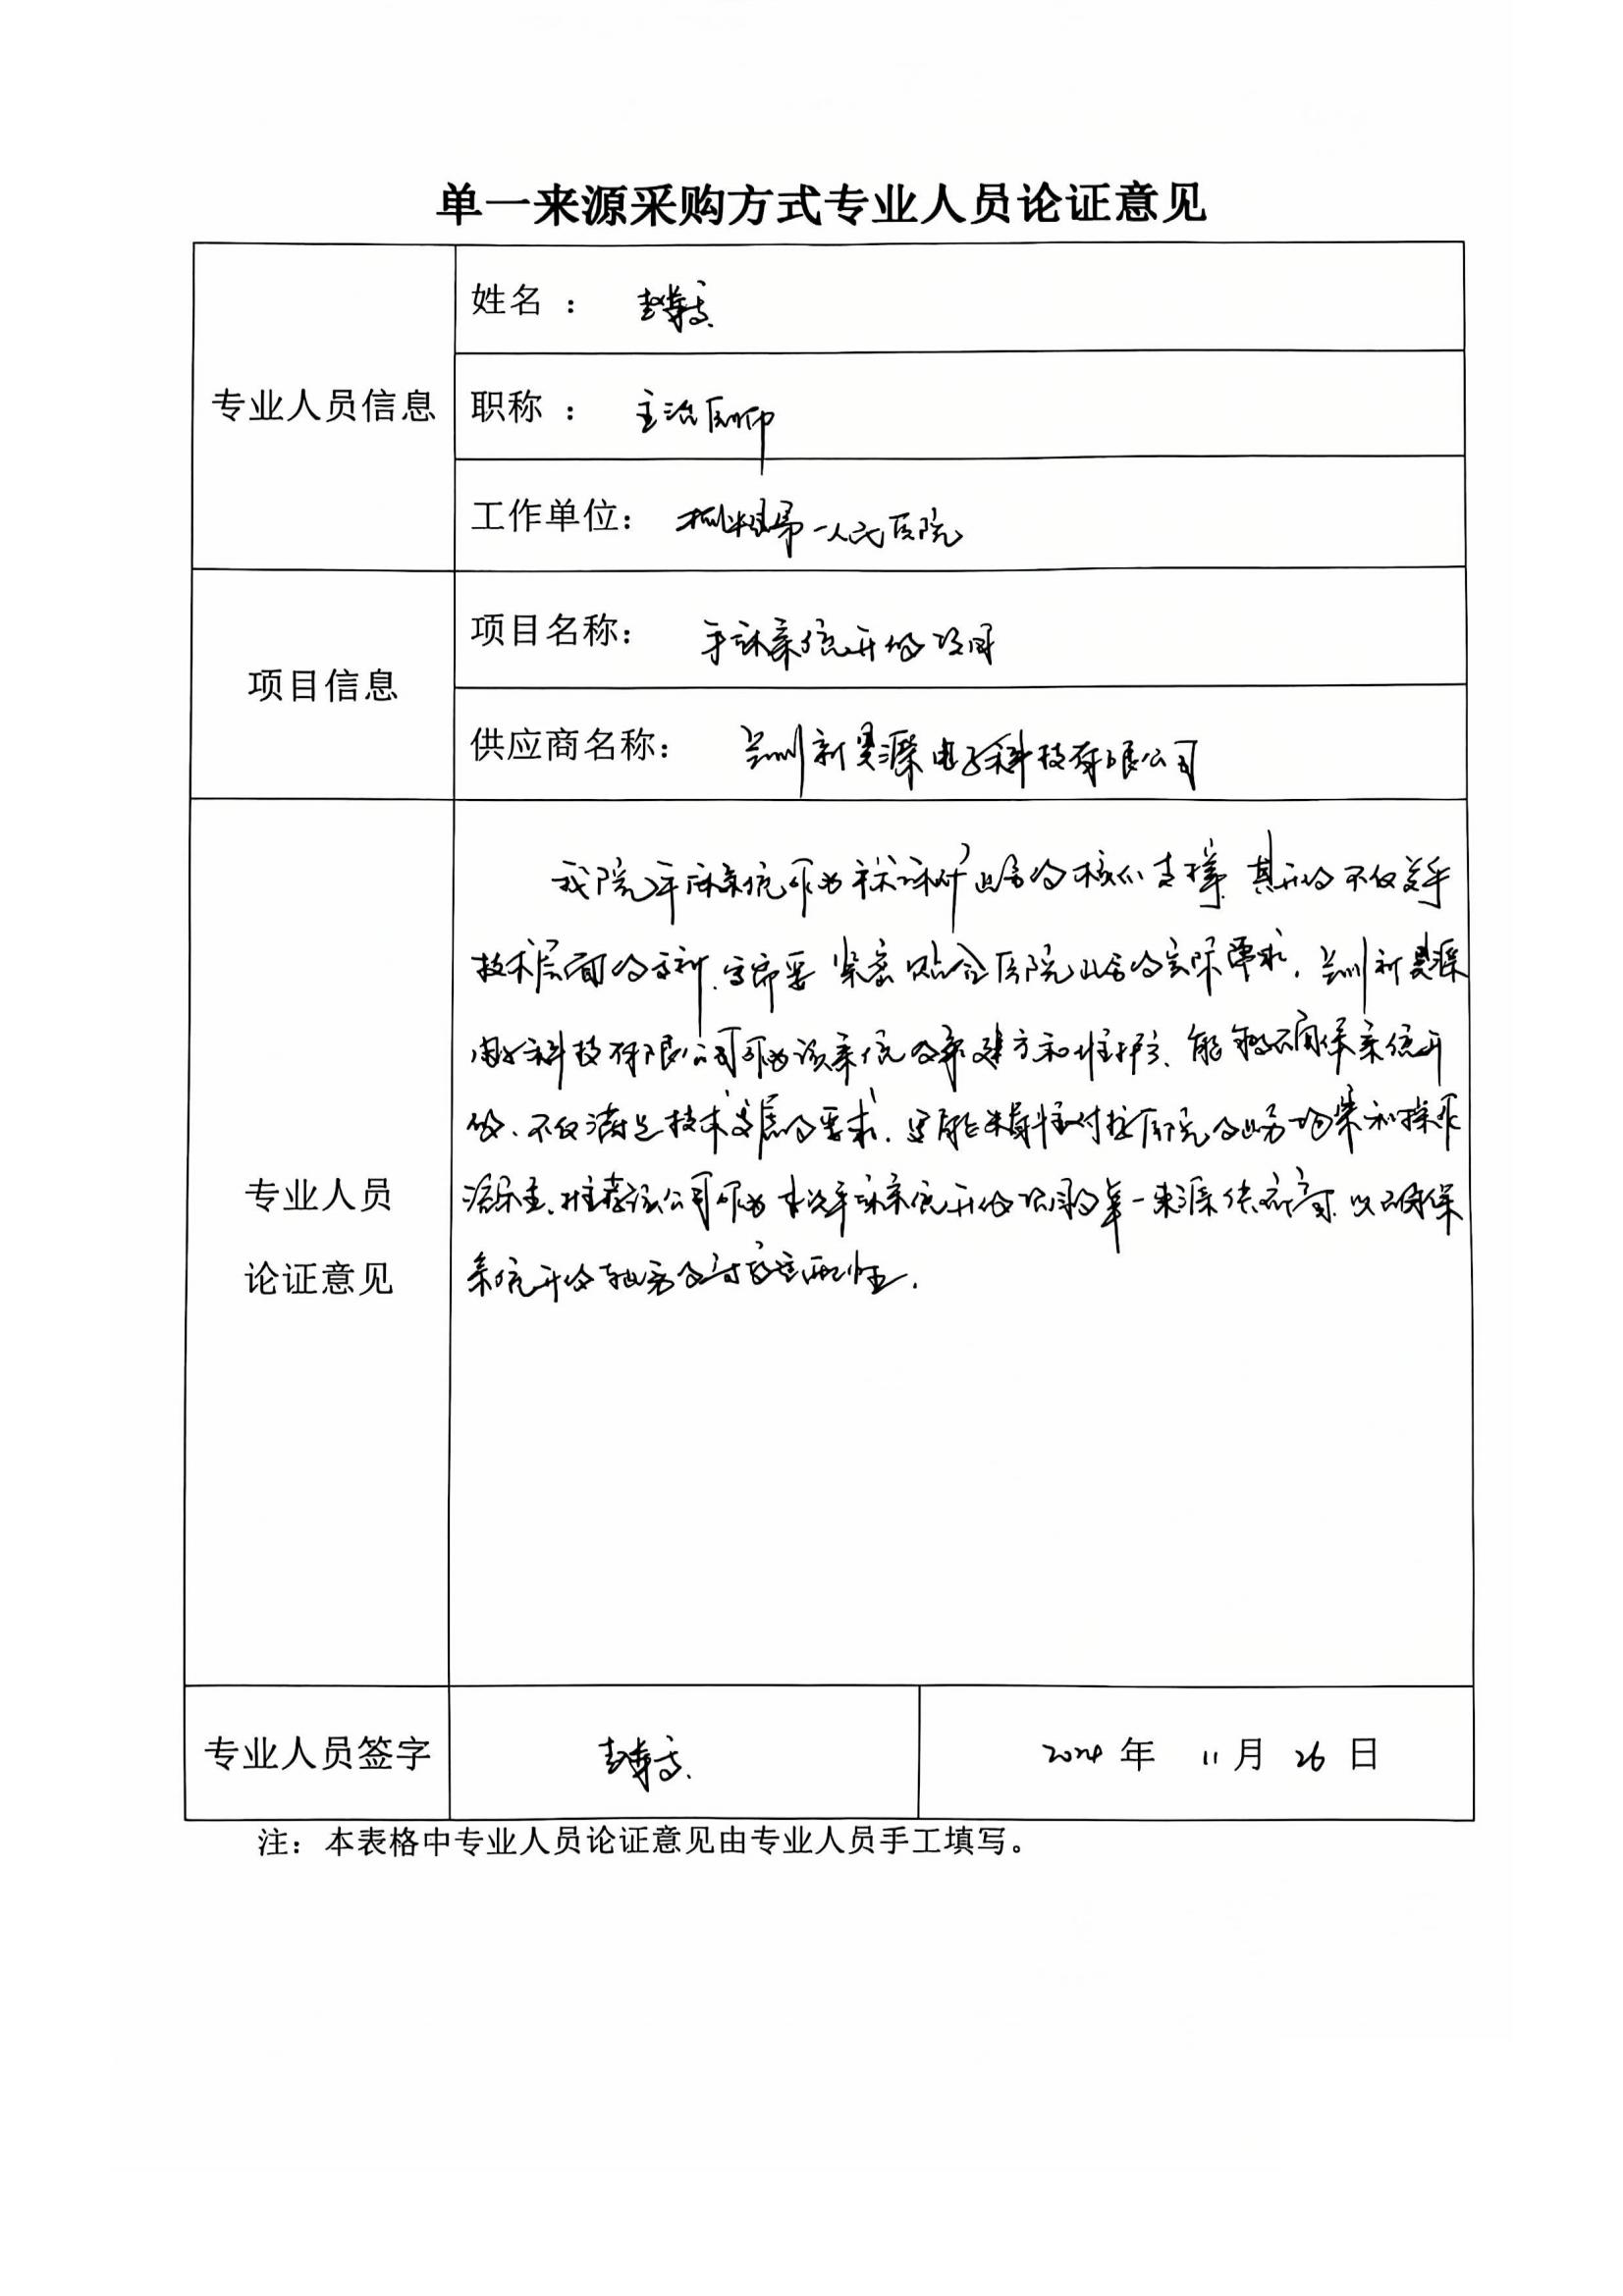 单一来源采购方式专业人员论证意见
专业人员信息
姓名：
职称： 主治医师
工作单位： 第一人民医院
项目信息
项目名称： 手麻系统升级项目
供应商名称： 兰州新昊源电子科技有限公司
专业人员
论证意见
我院手麻系统作为手术麻醉业务的核心支撑，其升级不仅关乎
技术层面的革新，更需要紧密贴合医院业务的实际需求，兰州新昊源
电子科技有限公司作为该系统的承建方和维护方，能够确保系统升
级，不仅满足技术发展的要求，更能精准对接医院的业务场景和操作
流程，推荐该公司作为本次手麻系统升级项目的单一来源供应商，以确保
系统升级与业务的高度匹配性。
专业人员签字
2024 年 11 月 26 日
注：本表格中专业人员论证意见由专业人员手工填写。